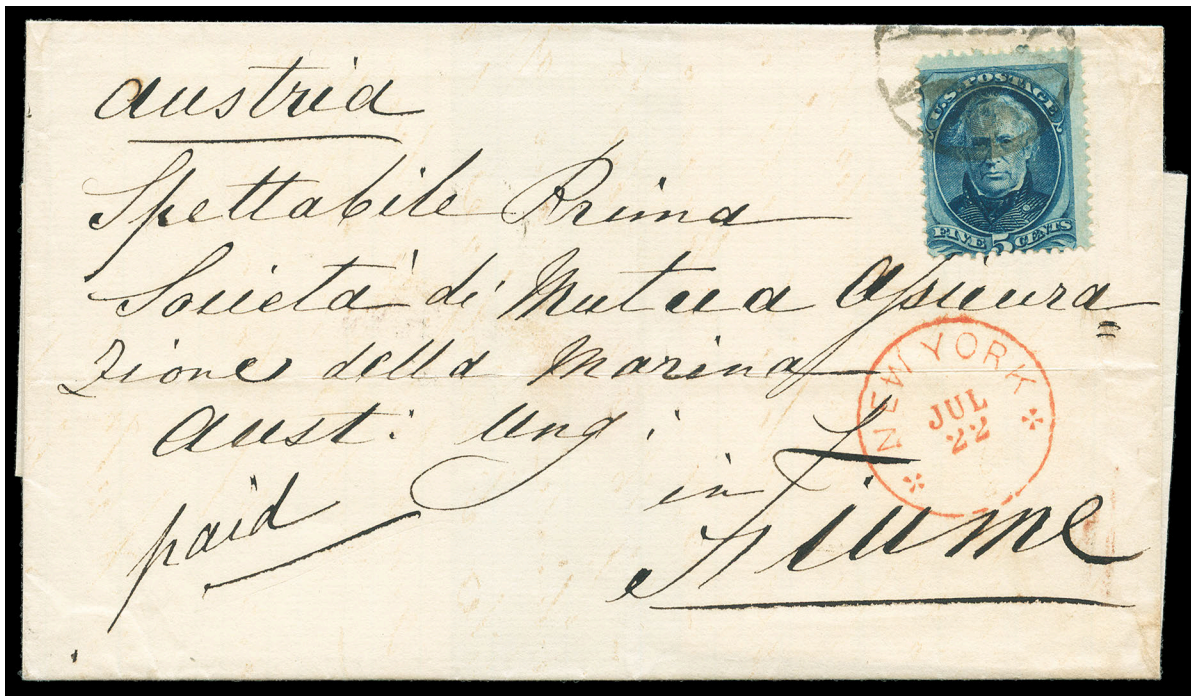 Austria
U.S. POSTAGE
FIVE 5 CENTS
Spettabile Prima
Società di Mutua Assicura=
zione della Marina
Aust: Ung:
NEW YORK
JUL
22
paid
in
Fiume